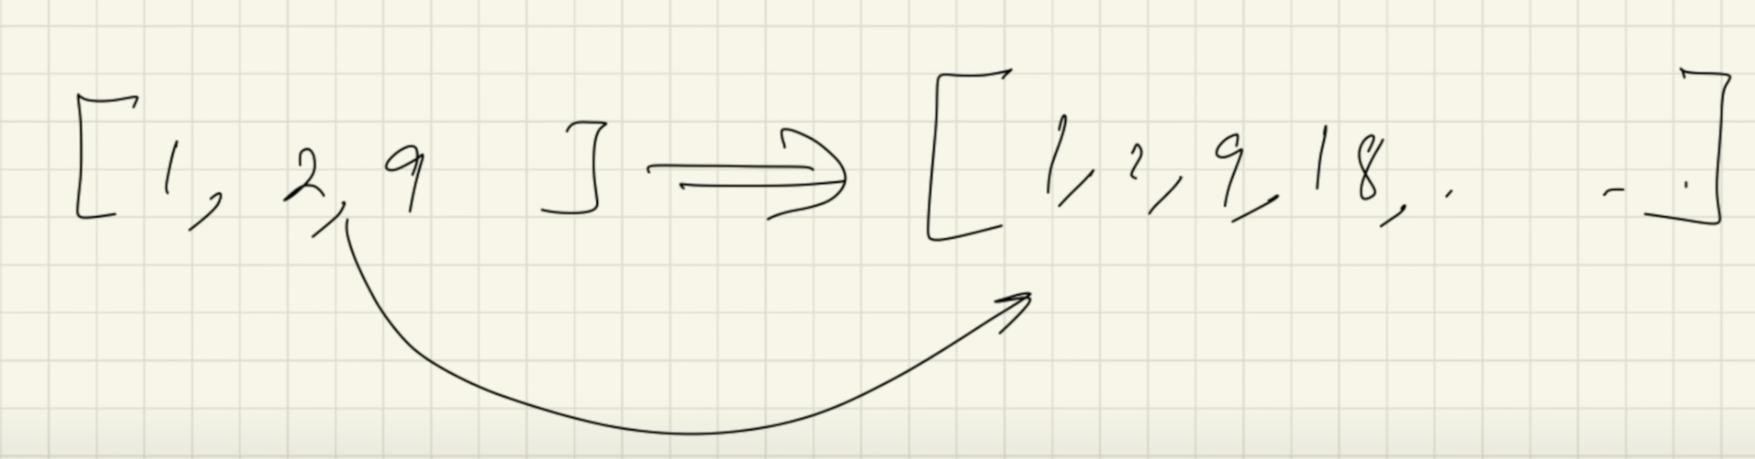 [ 1, 2, 9 ] ⇒ [ 1, 2, 9, 18, . - . ]